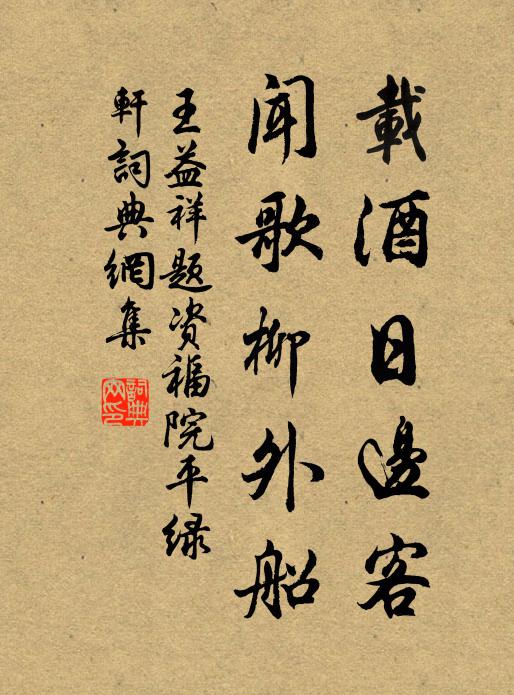 載酒日邊客
聞歌柳外船
王益祥題资福院平绿
軒詞典網集
詞典網印